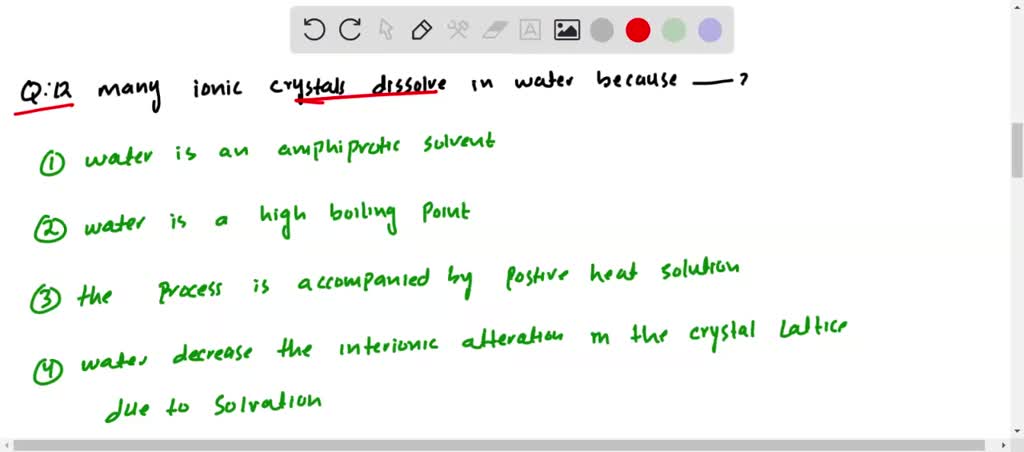 Q:12 many ionic crystals dissolve in water because — ?
① water is an amphiprotic solvent
② water is a high boiling point
③ the process is accompanied by postive heat solution
④ water decrease the interionic alteration in the crystal lattice
due to solvation